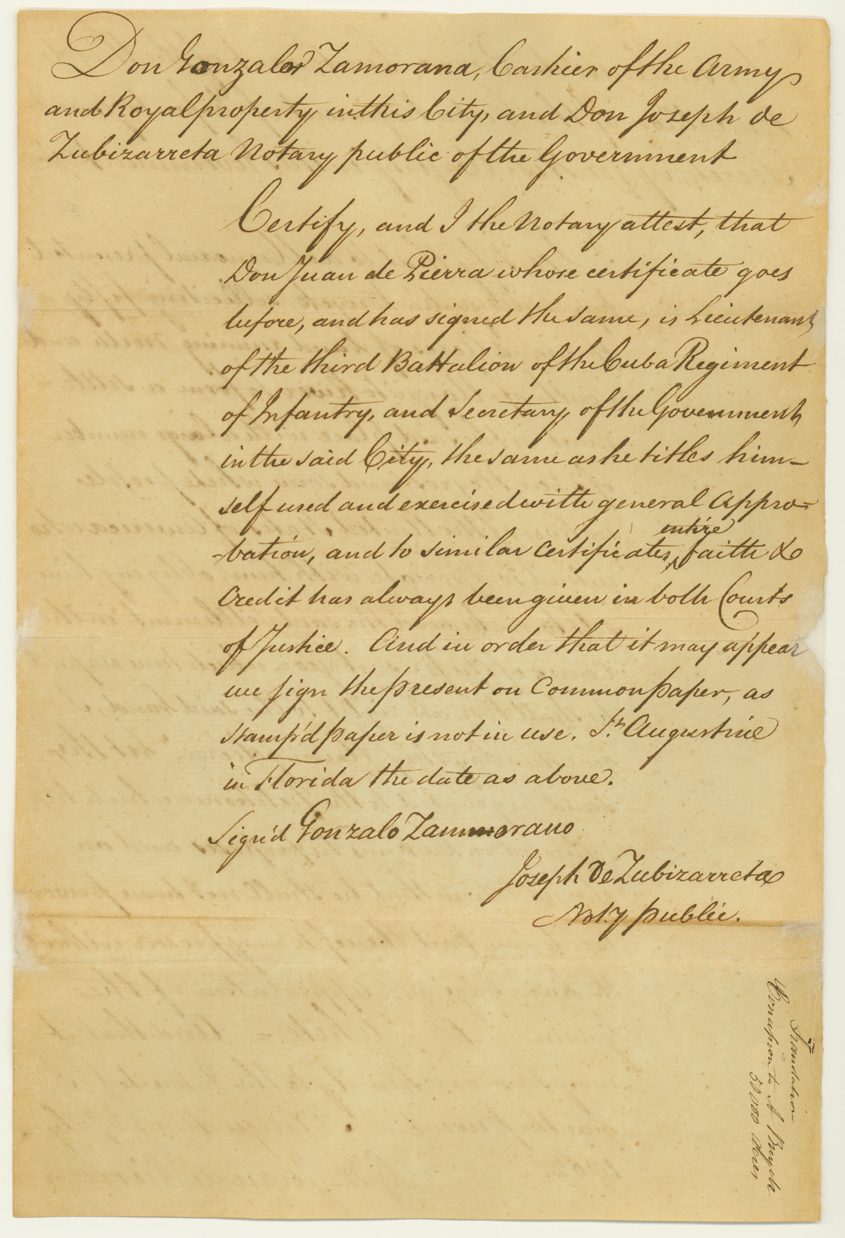 Don Gonzalor Zamorana, Cashier of the Army
and Royal property in this City, and Don Joseph de
Zubizarreta Notary public of the Government
Certify, and I the Notary attest, that
Don Juan de Pierra whose certificate goes
before, and has signed the same, is Lieutenant
of the third Battalion of the Cuba Regiment
of Infantry, and Secretary of the Government
in the said City, the same as he titles him-
self used and exercised with general Appro-
entire
-bation, and to similar Certificates, faith &
Credit has always been given in both Courts
of Justice. And in order that it may appear
we sign the present on Common paper, as
Stamp'd paper is not in use. St. Augustine
in Florida the date as above.
Sign'd Gonzalo Zammorano
Joseph De Zubizarreta
Not.y public.
Translation
Concession to A Buyck
50000 Acres